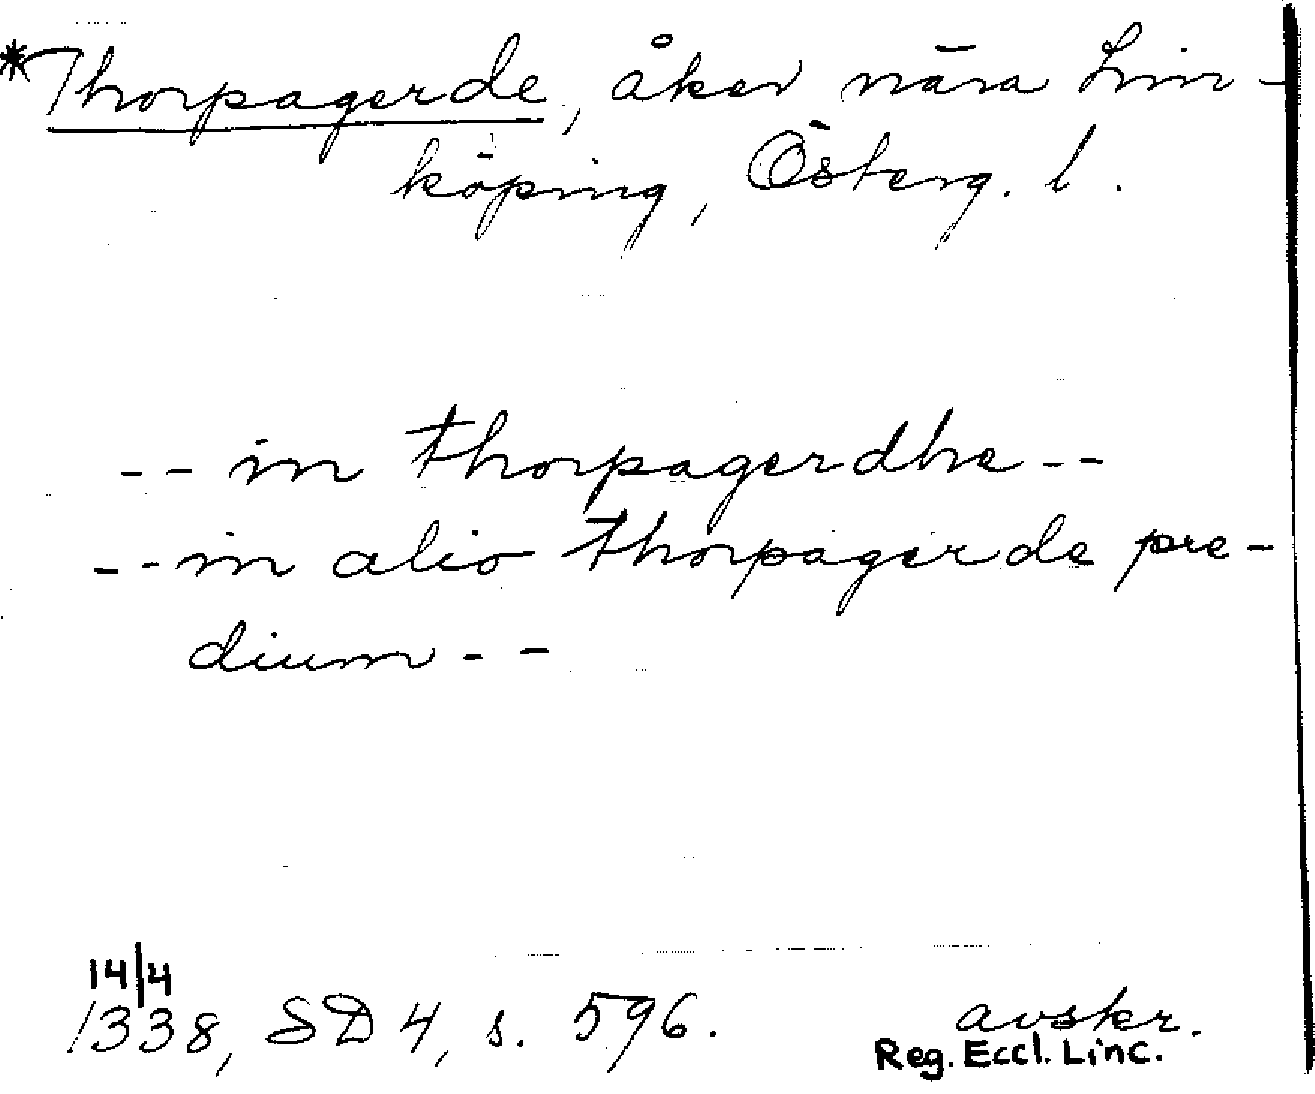 *Thorpagerde, åker nära Lin-
köping, Österg. l.
-- in thorpagerdhe --
-- in alio thorpagerde pre-
dium --
14/4
1338, SD 4, s. 596.
avskr.
Reg. Eccl. Linc.